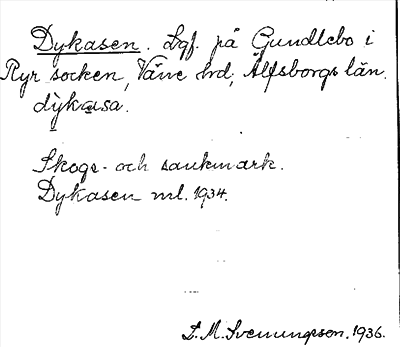 Dykasen. Lgf. på Gundlebo i
Ryr socken, Väne hrd, Älfsborgs län.
dỳkasa.
Skogs- och sankmark.
Dykasen ml. 1934.
D. M. Svenungsson. 1936.